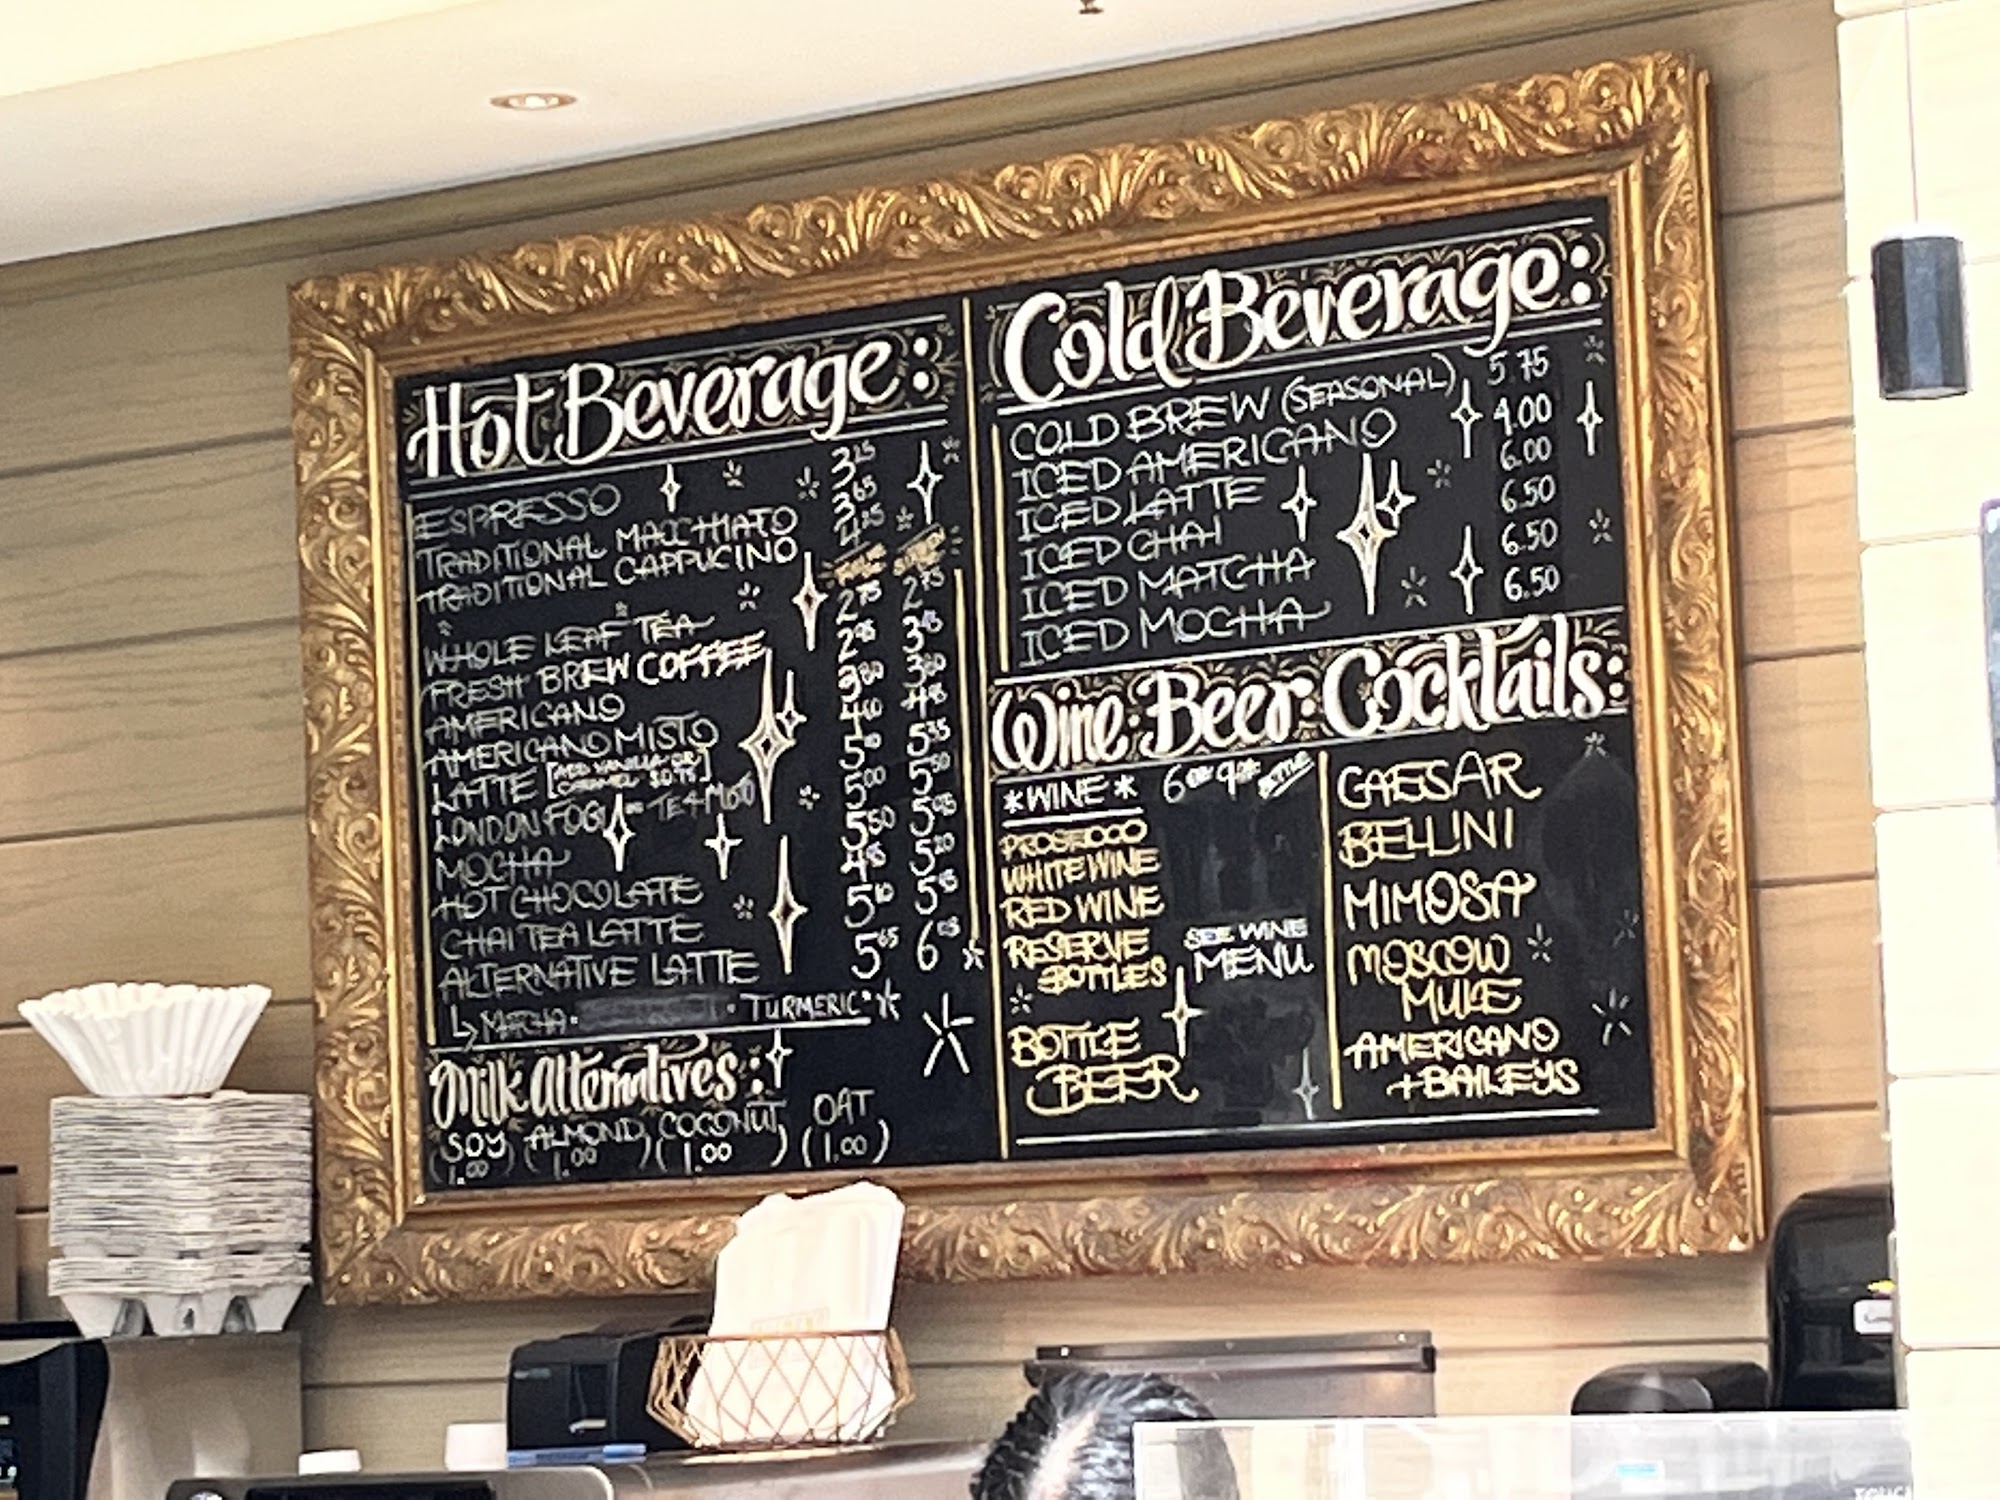 Hot Beverage:
ESPRESSO 3.25
TRADITIONAL MACCHIATO 3.65
TRADITIONAL CAPPUCINO 4.25
WHOLE LEAF TEA 2.75 2.75
FRESH BREW COFFEE 2.95
AMERICANO 3.80 3.80
AMERICANO MISTO
LATTE [ADD VANILLA OR CARAMEL $0.75] 5.35
LONDON FOG 5.00 5.50
MOCHA 5.50 5.95
HOT CHOCOLATE 5.20
CHAI TEA LATTE
ALTERNATIVE LATTE 5.65
↳ MATCHA • • TURMERIC*
Milk Alternatives:
SOY ALMOND COCONUT OAT
(1.00) (1.00) (1.00) (1.00)
Cold Beverage:
COLD BREW (SEASONAL) 5.75
ICED AMERICANO 4.00
ICED LATTE 6.00
ICED CHAI 6.50
ICED MATCHA 6.50
ICED MOCHA 6.50
Wine • Beer • Cocktails:
*WINE* 6oz 9oz BOTTLE
PROSECCO
WHITE WINE
RED WINE
RESERVE
BOTTLES
SEE WINE
MENU
BOTTLE
BEER
CAESAR
BELLINI
MIMOSA
MOSCOW
MULE
AMERICANO
+BAILEYS